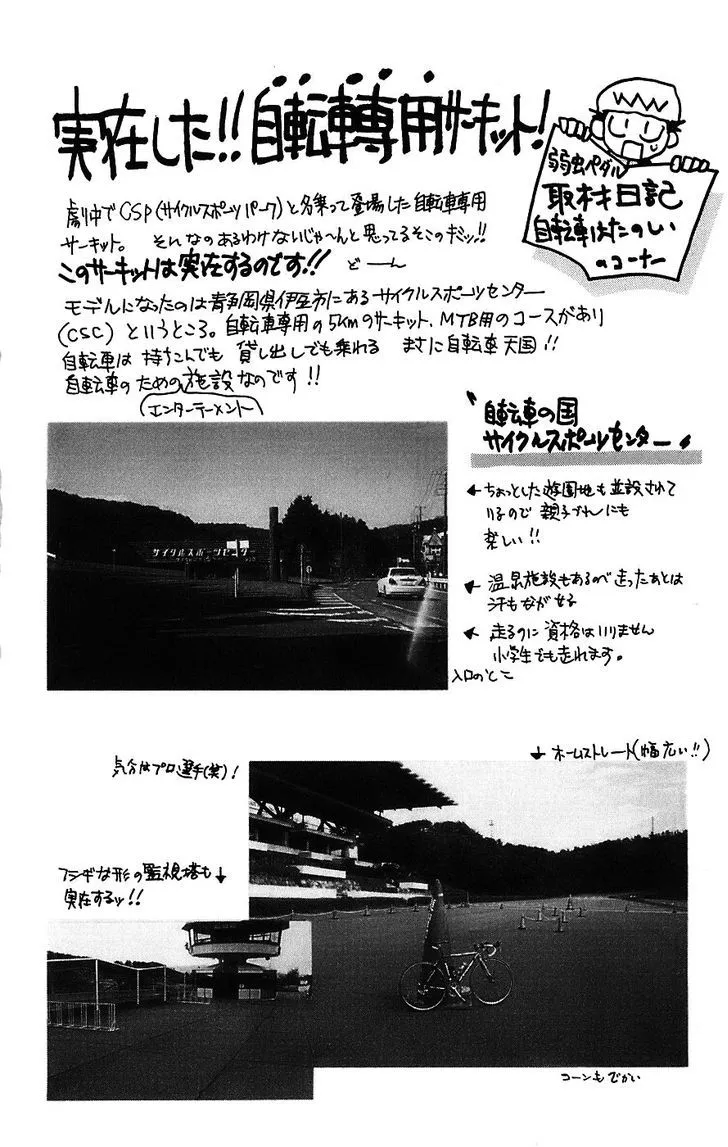 実在した!!自転車専用サーキット!
弱虫ペダル
取材日記
自転車はたのしい
のコーナー
劇中でCSP(サイクルスポーツパーク)と名乗って登場した自転車専用
サーキット。 そんなのあるわけないじゃ〜んと思ってるそこのキミッ!!
このサーキットは実在するのです!! どーん
モデルになったのは静岡県伊豆市にあるサイクルスポーツセンター
(CSC)というところ。自転車専用の5kmのサーキット、MTB用のコースがあり
自転車は 持ちこんでも 貸し出しでも乗れる まさに自転車天国!!
自転車のための施設なのです!!
(エンターテーメント)
"自転車の国
サイクルスポーツセンター"
←ちょっとした遊園地も並設されて
いるので 親子づれにも
楽しい!!
←温泉施設もあるので走ったあとは
汗もながせる
←走るのに資格はいりません
小学生でも走れます。
サイクルスポーツセンター
入口のとこ
↓ホームストレート(幅広い!!)
気分はプロ選手(笑)!
フシギな形の監視塔も↓
実在するッ!!
コーンもでかい